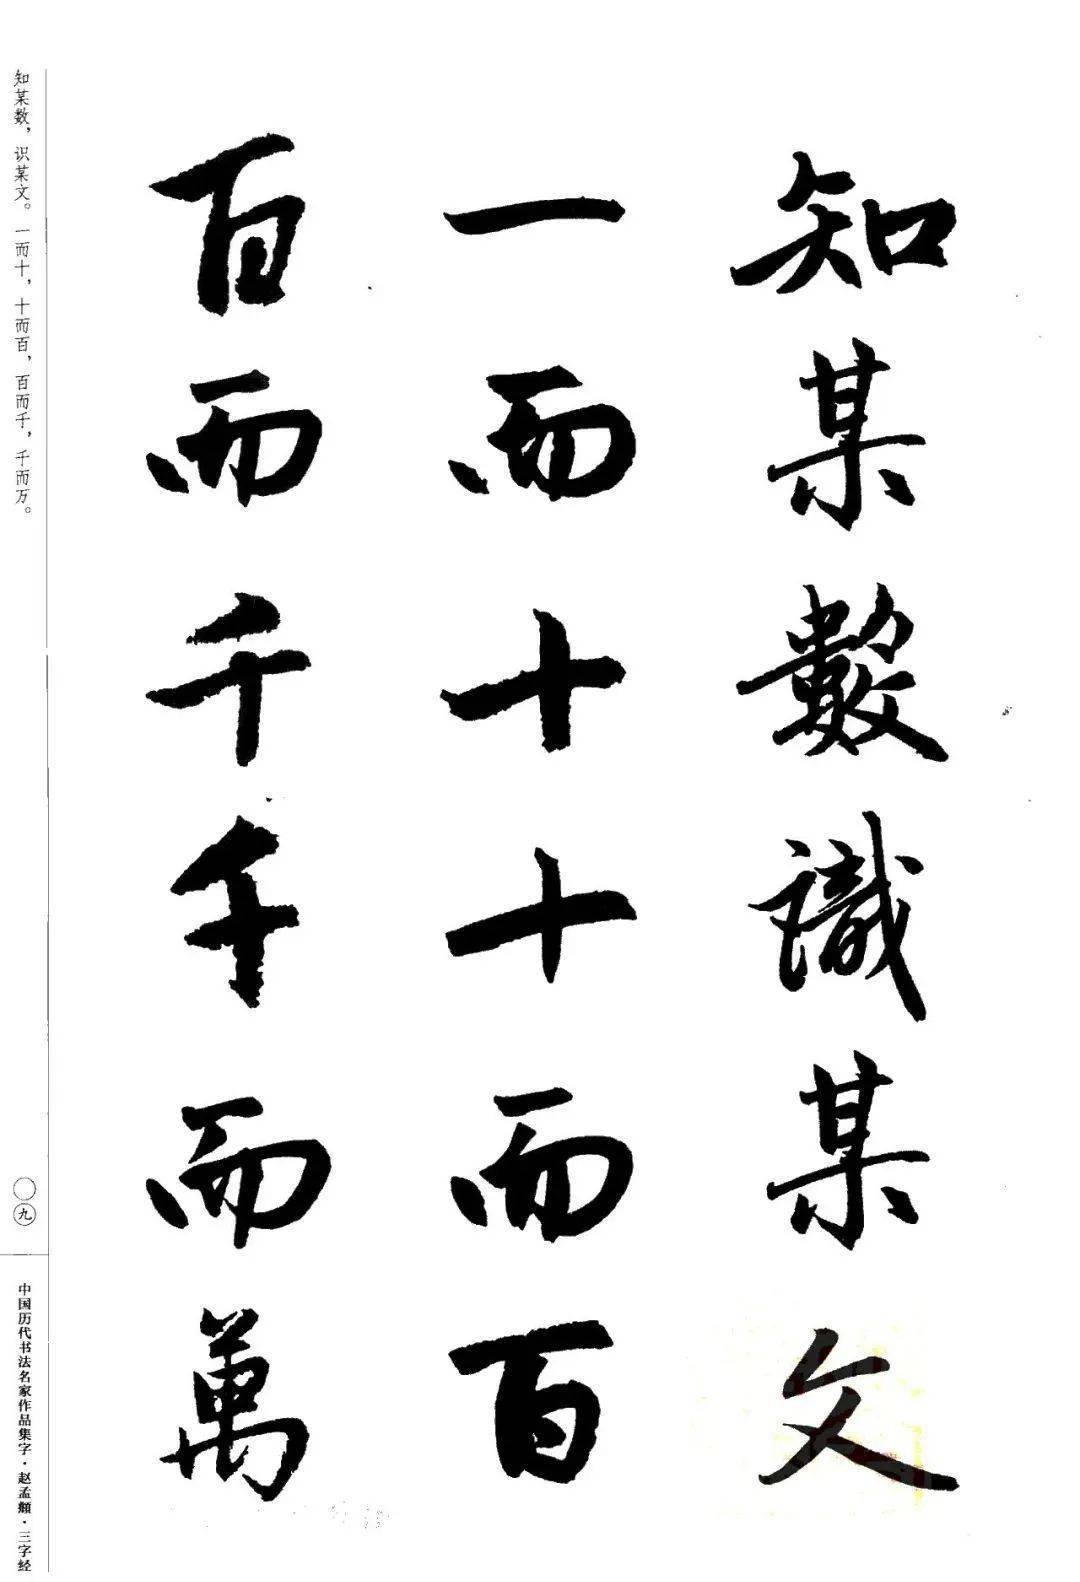 知某數識某文
一而十十而百
百而千千而萬
知某数，识某文。一而十，十而百，百而千，千而万。
〇九
中国历代书法名家作品集字·赵孟頫·三字经